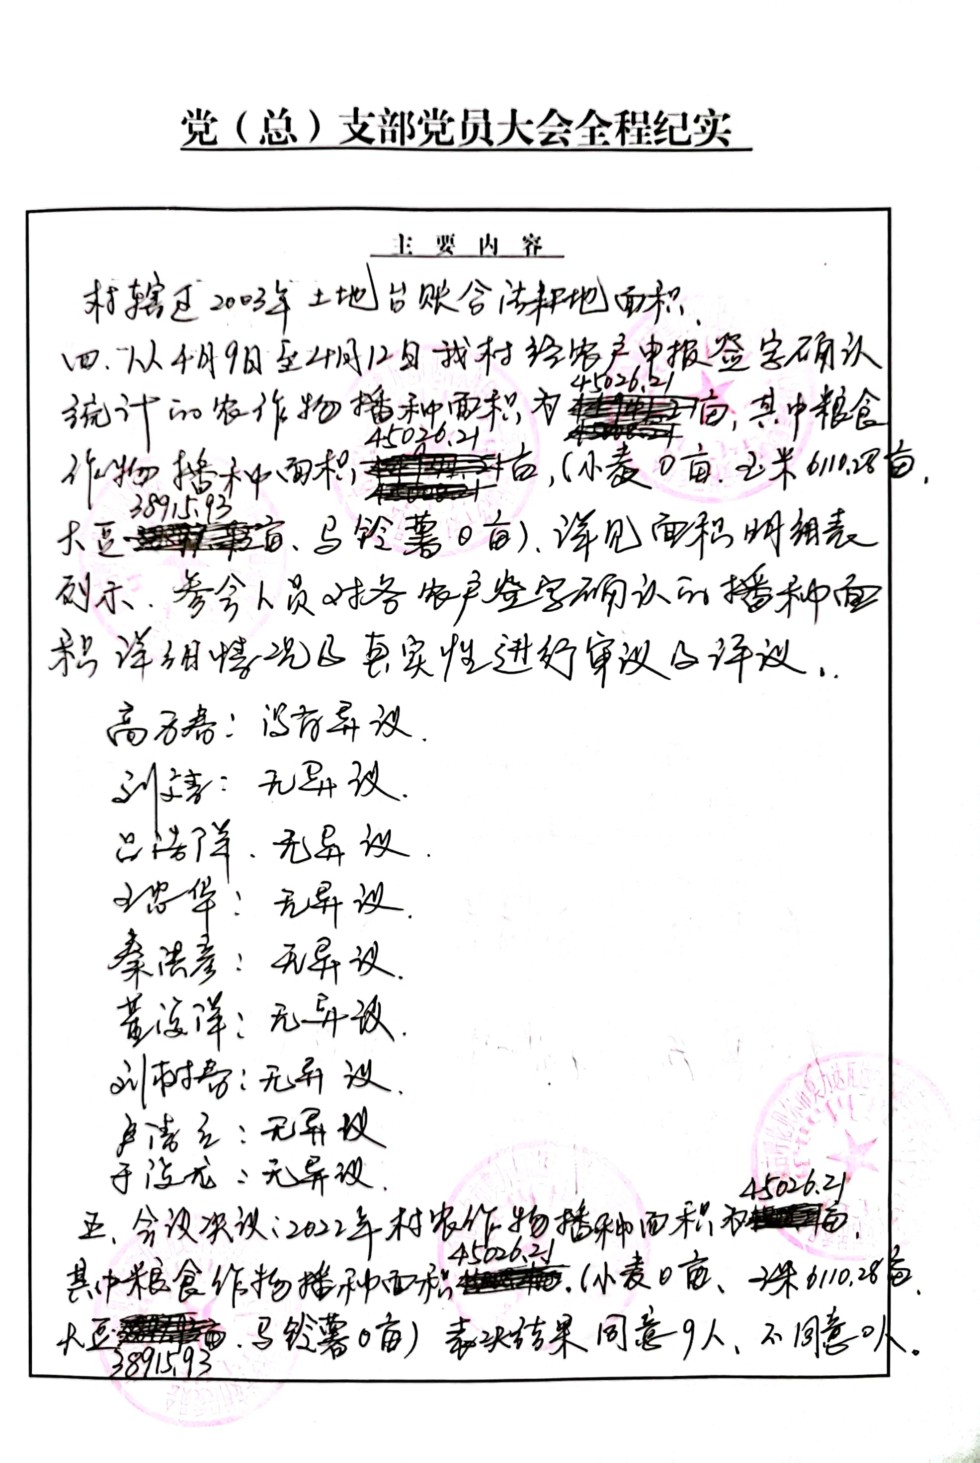 党（总）支部党员大会全程纪实
主要内容
村辖区2003年土地台账合法耕地面积.
四、从4月9日至4月12日我村经农户申报签字确认
45026.21
统计的农作物播种面积为亩,其中粮食
45026.21
作物播种面积亩,(小麦0亩.玉米6110.28亩.
38915.93
大豆亩、马铃薯0亩)、详见面积明细表
列示.参会人员对各农户签字确认的播种面
积详细情况及真实性进行审议及评议.
高万春:没有异议.
刘文春:无异议.
吕洪祥.无异议.
王忠华:无异议.
秦洪彦:无异议.
黄海洋:无异议.
刘树春:无异议.
卢清立:无异议
于海龙:无异议.
45026.21
五、会议决议:2022年村农作物播种面积为亩,
45026.21
其中粮食作物播种面积.(小麦0亩、玉米6110.28亩.
大豆亩.马铃薯0亩)表决结果同意9人、不同意0人.
38915.93